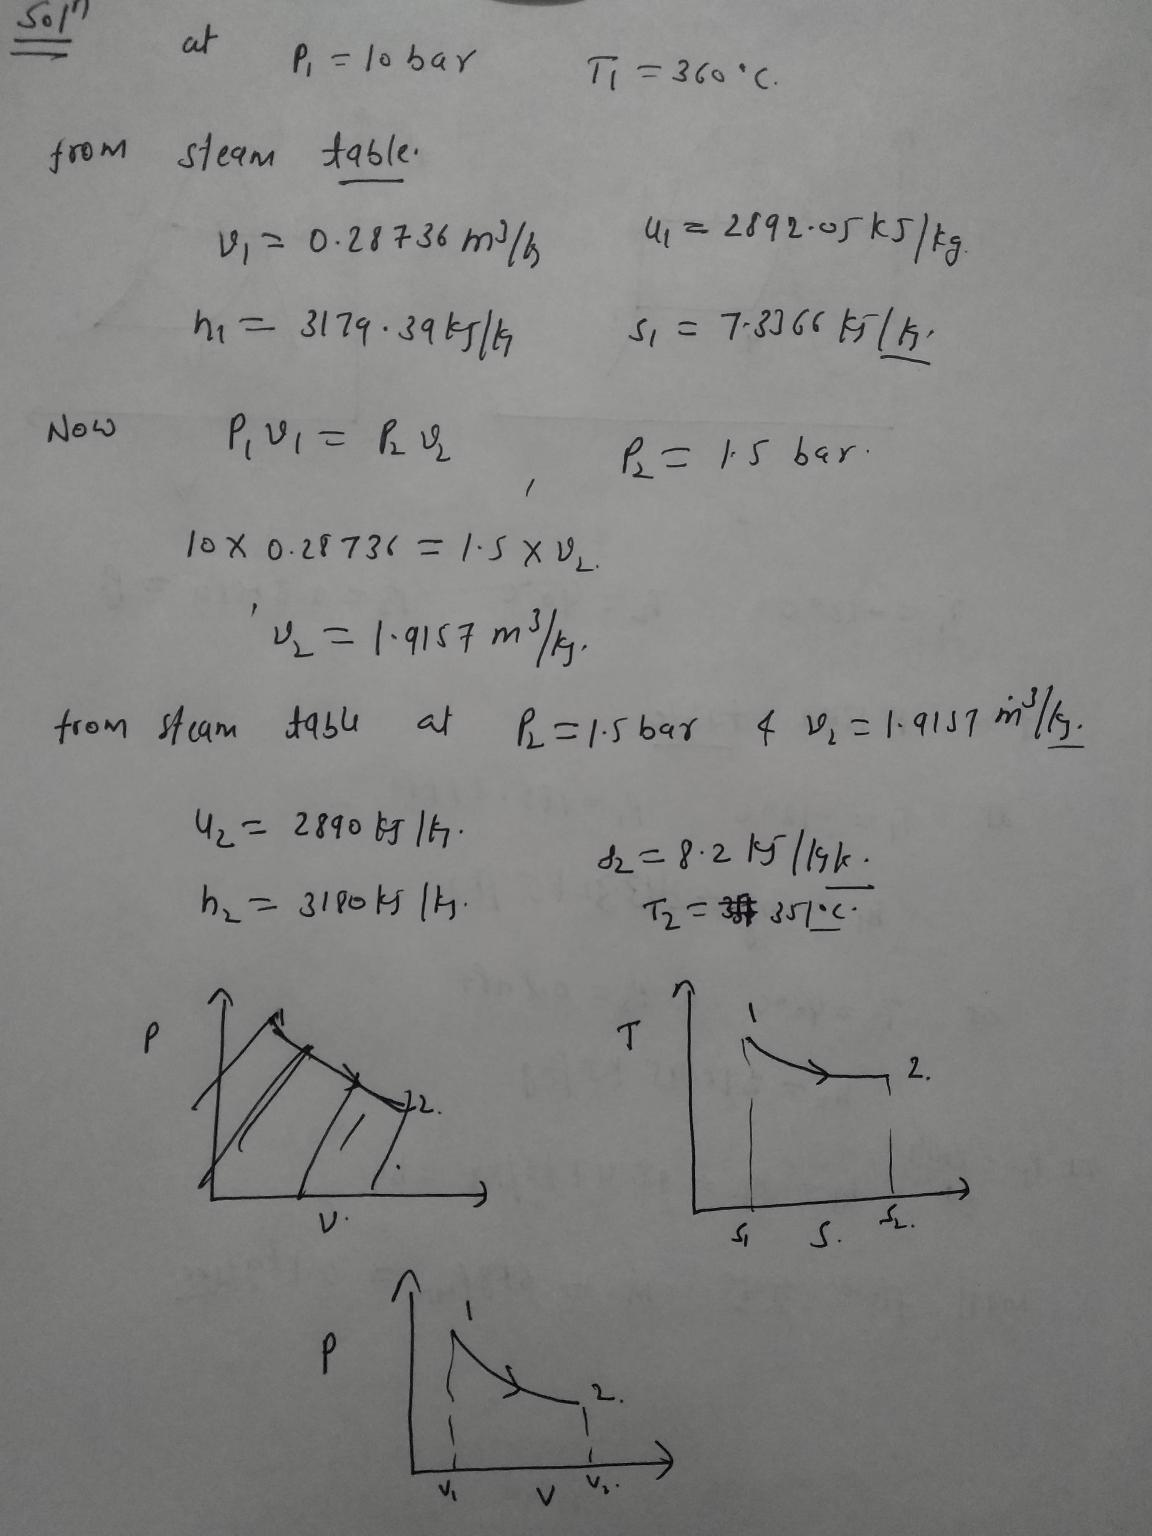 Solⁿ at P₁ = 10 bar T₁ = 360°C.
from steam table.
v₁ = 0.28736 m³/kg u₁ = 2892.05 kJ/kg.
h₁ = 3179.39 kJ/kg s₁ = 7.3366 kJ/kg.
Now P₁v₁ = P₂v₂ P₂ = 1.5 bar.
10 x 0.28736 = 1.5 x v₂.
v₂ = 1.9157 m³/kg.
from steam table at P₂ = 1.5 bar & v₂ = 1.9157 m³/kg.
u₂ = 2890 kJ/kg. s₂ = 8.2 kJ/kgk.
h₂ = 3180 kJ/kg. T₂ = 351°C.
P 1 2. V.
T 1 2. s₁ S. s₂.
P 1 2. V₁ V V₂.